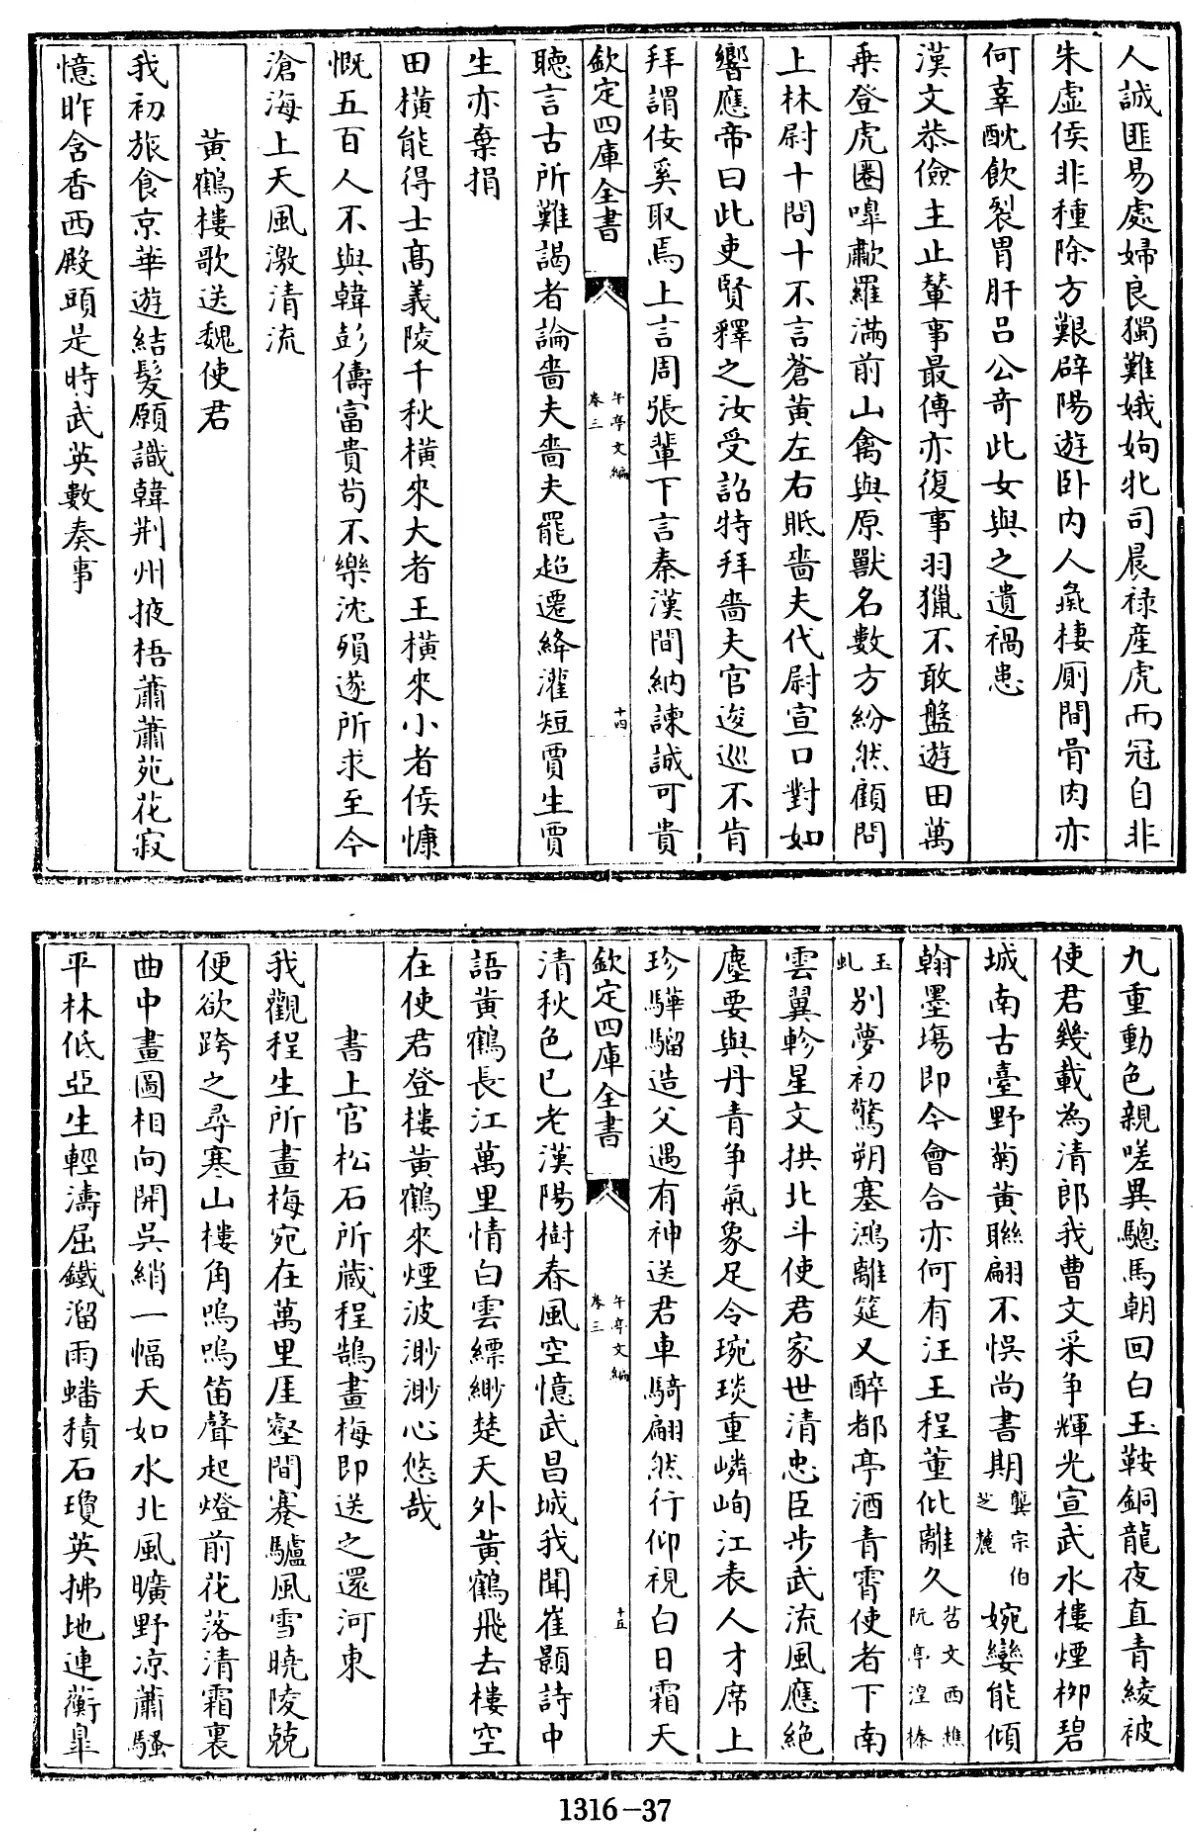 人誠匪易處婦良獨難娥姁牝司晨祿產虎而冠自非
朱虛侯非種除方艱辟陽遊卧内人彘棲厠間骨肉亦
何辜酖飲裂胃肝吕公奇此女與之遺禍患
漢文恭儉主止輦事最傳亦復事羽獵不敢盤遊田萬
乗登虎圈嘷歗羅滿前山禽與原獸名數方紛然顧問
上林尉十問十不言蒼黄左右眡嗇夫代尉宣口對如
響應帝曰此吏賢釋之汝受詔特拜嗇夫官逡巡不肯
拜謂佞奚取焉上言周張輩下言秦漢間納諫誠可貴
欽定四庫全書
午亭文編
卷三
十四
聴言古所難謁者論嗇夫嗇夫罷超遷絳灌短賈生賈
生亦棄捐
田横能得士髙義陵千秋横來大者王横來小者侯慷
慨五百人不與韓彭儔富貴茍不樂沈殞遂所求至今
滄海上天風激清流
黄鶴樓歌送魏使君
我初旅食京華遊結髪願識韓荆州掖梧蕭蕭苑花寂
憶昨含香西殿頭是時武英數奏事
九重動色親嗟異驄馬朝回白玉鞍銅龍夜直青綾被
使君幾載為清郎我曹文采争輝光宣武水樓煙栁碧
城南古臺野菊黄聯翩不悞尚書期龔宗伯芝麓婉孌能傾
翰墨塲即今會合亦何有汪王程董仳離久苕文西樵阮亭湟榛
玉虬別夢初驚朔塞鴻離筵又醉都亭酒青霄使者下南
雲翼軫星文拱北斗使君家世清忠臣步武流風應絶
塵要與丹青争氣象足令琬琰重嶙峋江表人才席上
珍驊騮造父遇有神送君車騎翩然行仰視白日霜天
欽定四庫全書
午亭文編
卷三
十五
清秋色已老漢陽樹春風空憶武昌城我聞崔顥詩中
語黄鶴長江萬里情白雲縹緲楚天外黄鶴飛去樓空
在使君登樓黄鶴來煙波渺渺心悠哉
書上官松石所藏程鵠畫梅即送之還河東
我觀程生所畫梅宛在萬里厓壑間蹇驢風雪曉陵兢
便欲跨之尋寒山樓角嗚嗚笛聲起燈前花落清霜裏
曲中畫圖相向開吳綃一幅天如水北風曠野凉蕭騷
平林低亞生輕濤屈鐵溜雨蟠積石瓊英拂地連蘅臯
1316-37